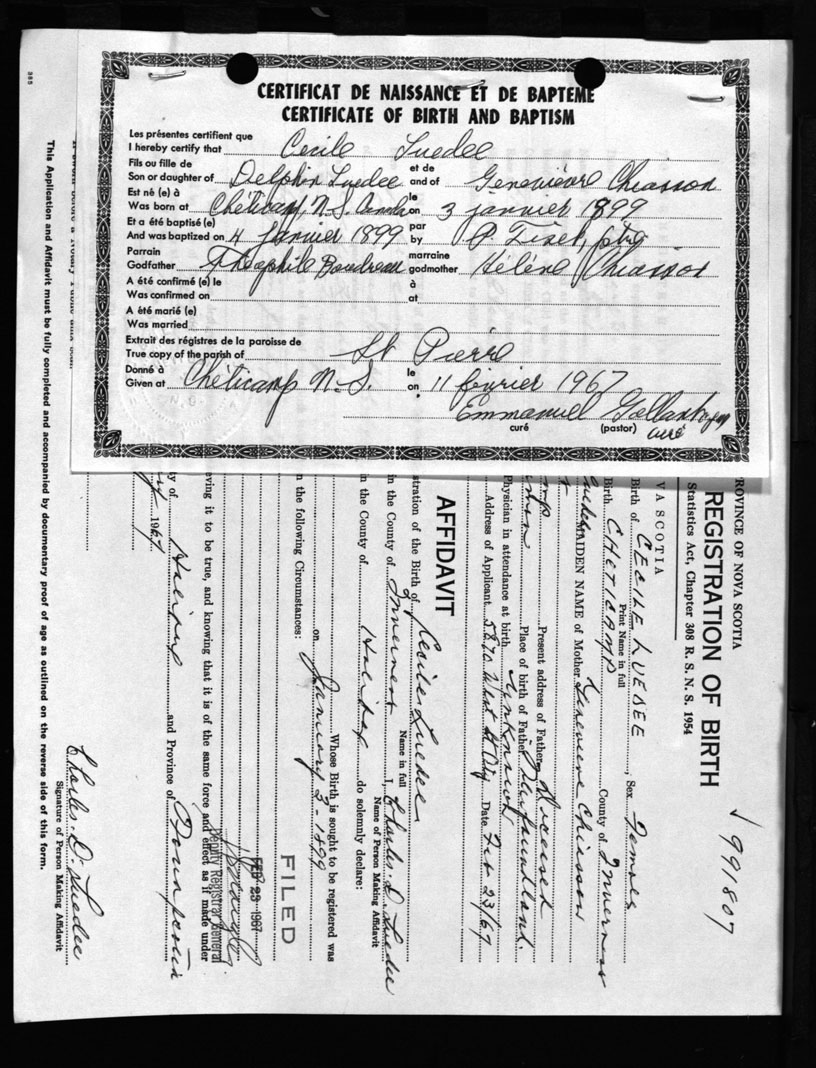 CERTIFICAT DE NAISSANCE ET DE BAPTEME
CERTIFICATE OF BIRTH AND BAPTISM
Les présentes certifient que
I hereby certify that Cecile Luedee
Fils ou fille de et de
Son or daughter of Delphin Luedee and of Geneviève Chiasson
Est né (e) à le
Was born at Chéticamp, N.S. Canada on 3 janvier 1899
Et a été baptisé (e) par
And was baptized on 4 janvier 1899 by P. Fiset, ptre
Parrain marraine
Godfather Théophile Boudreau godmother Hélène Chiasson
A été confirmé (e) le à
Was confirmed on at
A été marié (e)
Was married
Extrait des régistres de la paroisse de
True copy of the parish of St Pierre
Donné à le
Given at Chéticamp N.S. on 11 février 1967
Emmanuel Gallant
curé (pastor) curé
√ 991807
ROVINCE OF NOVA SCOTIA
REGISTRATION OF BIRTH
Statistics Act, Chapter 308 R. S. N. S. 1954
VA SCOTIA
Birth of CECILE LUEDEE, Sex Female
Print Name in full
Birth CHETICAMP County of Inverness
MAIDEN NAME of Mother Genevieve Chiasson
Present address of Father Deceased
Place of birth of Father Newfoundland.
Physician in attendance at birth Unknown
Address of Applicant 5870 West St Date Feb 23/67
AFFIDAVIT
stration of the Birth of Cecile Luedee
Name in full
in the County of Inverness I, Charles D. Luedee
Name of Person Making Affidavit
in the County of Halifax do solemnly declare:
Whose Birth is sought to be registered was
on January 3-1899
n the following Circumstances:
FILED
FEB 23 1967
Deputy Registrar General
eving it to be true, and knowing that it is of the same force and effect as if made under
ty of Halifax and Province of Nova Scotia
1967
Charles D. Luedee
Signature of Person Making Affidavit
This Application and Affidavit must be fully completed and accompanied by documentary proof of age as outlined on the reverse side of this form.